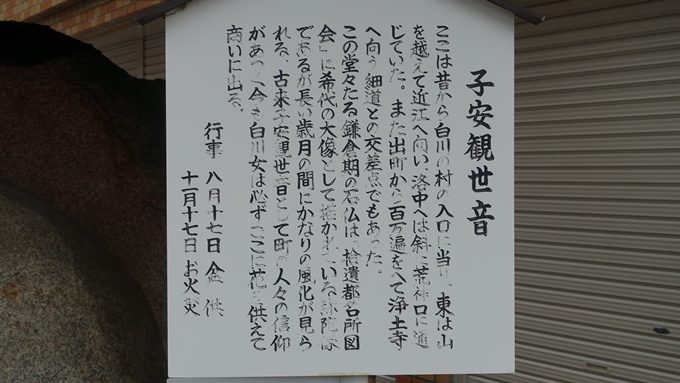 子安観世音
ここは昔から白川の村の入口に当り、東は山
を越えて近江へ向い、洛中へは斜に荒神口に通
じていた。また出町から百万遍をへて浄土寺
へ向う細道との交差点でもあった。
この堂々たる鎌倉期の石仏は「拾遺都名所図
会」に希代の大像として描かれている弥陀像
であるが長い歳月の間にかなりの風化が見ら
れる、古来子安観世音として町の人々の信仰
があつく今も白川女は必ずここに花を供えて
商いに出る。
行事 八月十七日 盆供
十一月十七日 お火焚